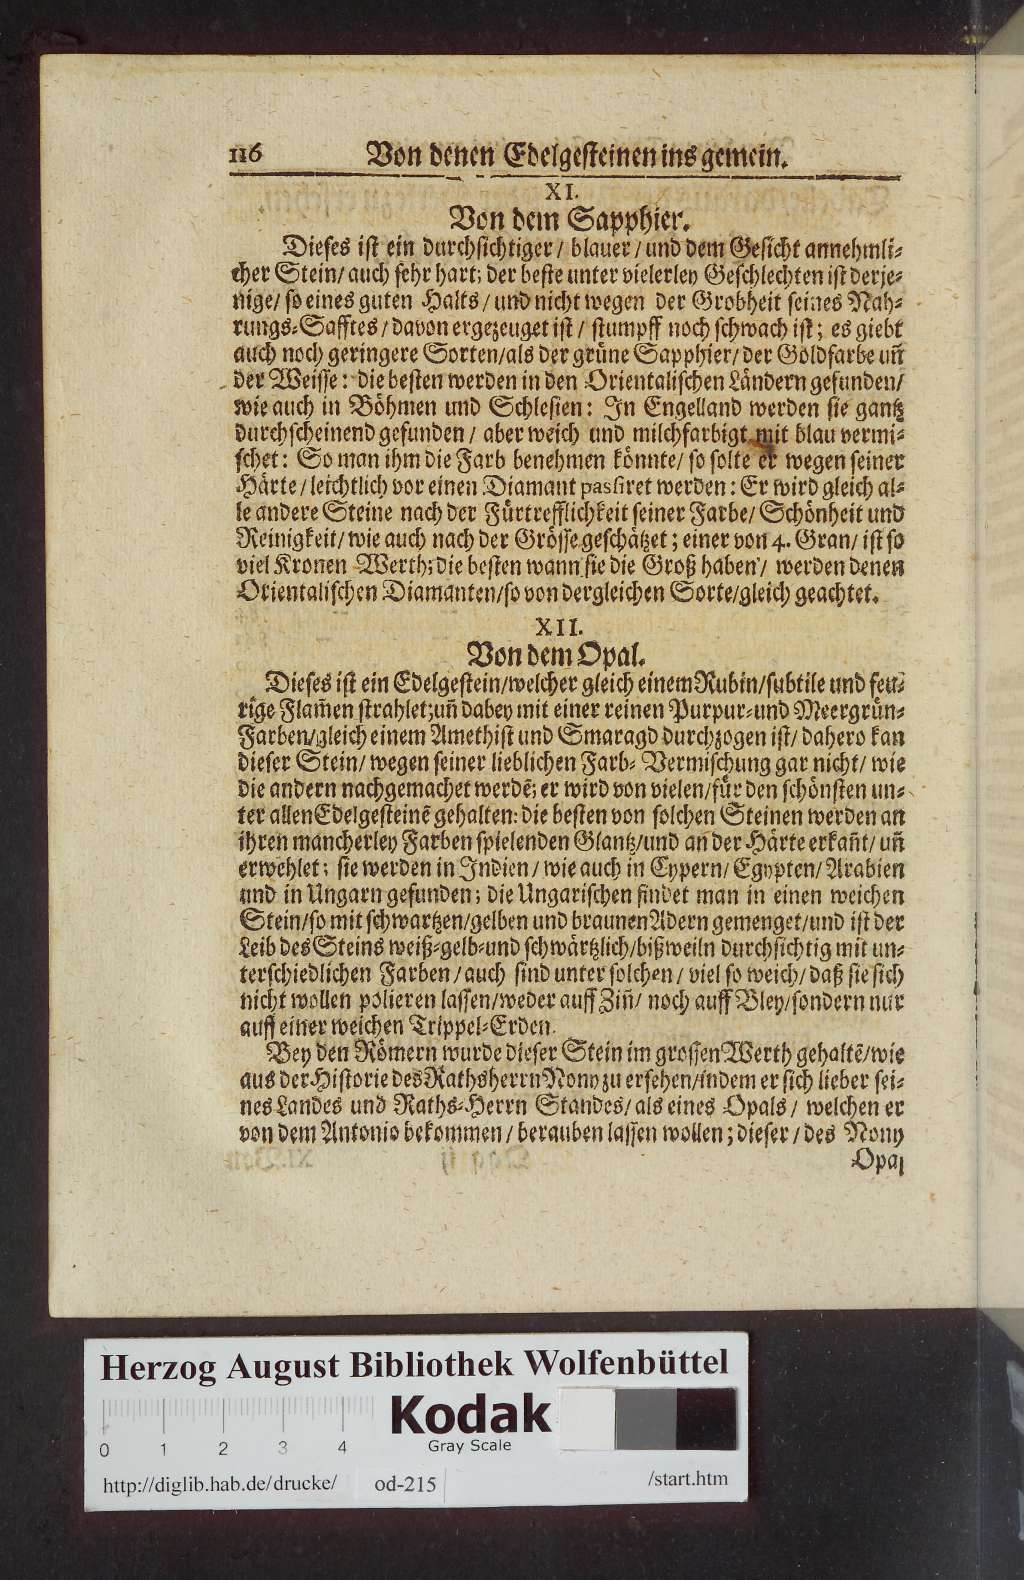 116 Von denen Edelgesteinen ins gemein.
XI.
Von dem Sapphier.
Dieses ist ein durchsichtiger / blauer / und dem Gesicht annehmli-
cher Stein / auch sehr hart; der beste unter vielerley Geschlechten ist derje-
nige / so eines guten Halts / und nicht wegen der Grobheit seines Nah-
rungs-Safftes / davon ergezeuget ist / stumpff noch schwach ist; es giebt
auch noch geringere Sorten / als der grüne Sapphier / der Goldfarbe un̄
der Weisse: die besten werden in den Orientalischen Ländern gefunden /
wie auch in Böhmen und Schlesien: In Engelland werden sie gantz
durchscheinend gefunden / aber weich und milchfarbigt mit blau vermi-
schet: So man ihm die Farb benehmen könnte / so solte er wegen seiner
Härte / leichtlich vor einen Diamant passiret werden: Er wird gleich al-
le andere Steine nach der Fürtrefflichkeit seiner Farbe / Schönheit und
Reinigkeit / wie auch nach der Grösse geschätzet; einer von 4. Gran / ist so
viel Kronen Werth; die besten wann sie die Groß haben / werden denen
Orientalischen Diamanten / so von dergleichen Sorte / gleich geachtet.
XII.
Von dem Opal.
Dieses ist ein Edelgestein / welcher gleich einem Rubin / subtile und feu-
rige Flam̄en strahlet; un̄ dabey mit einer reinen Purpur- und Meergrün-
Farben / gleich einem Amethist und Smaragd durchzogen ist / dahero kan
dieser Stein / wegen seiner lieblichen Farb- Vermischung gar nicht / wie
die andern nachgemachet werdē; er wird von vielen / für den schönsten un-
ter allen Edelgesteinē gehalten: die besten von solchen Steinen werden an
ihren mancherley Farben spielenden Glantz / und an der Härte erkan̄t / un̄
erwehlet; sie werden in Indien / wie auch in Cypern / Egypten / Arabien
und in Ungarn gefunden; die Ungarischen findet man in einen weichen
Stein / so mit schwartzen / gelben und braunen Adern gemenget / und ist der
Leib des Steins weiß-gelb- und schwärtzlich / bißweiln durchsichtig mit un-
terschiedlichen Farben / auch sind unter solchen / viel so weich / daß sie sich
nicht wollen polieren lassen / weder auff Zin̄ / noch auff Bley / sondern nur
auff einer weichen Trippel-Erden.
Bey den Römern wurde dieser Stein im grossen Werth gehaltē / wie
aus der Historie des Rathsherrn Nony zu ersehen / indem er sich lieber sei-
nes Landes und Raths-Herrn Standes / als eines Opals / welchen er
von dem Antonio bekommen / berauben lassen wollen; dieser / des Nony
Opal
Herzog August Bibliothek Wolfenbüttel
Kodak
Gray Scale
0 1 2 3 4
http://diglib.hab.de/drucke/ od-215 /start.htm